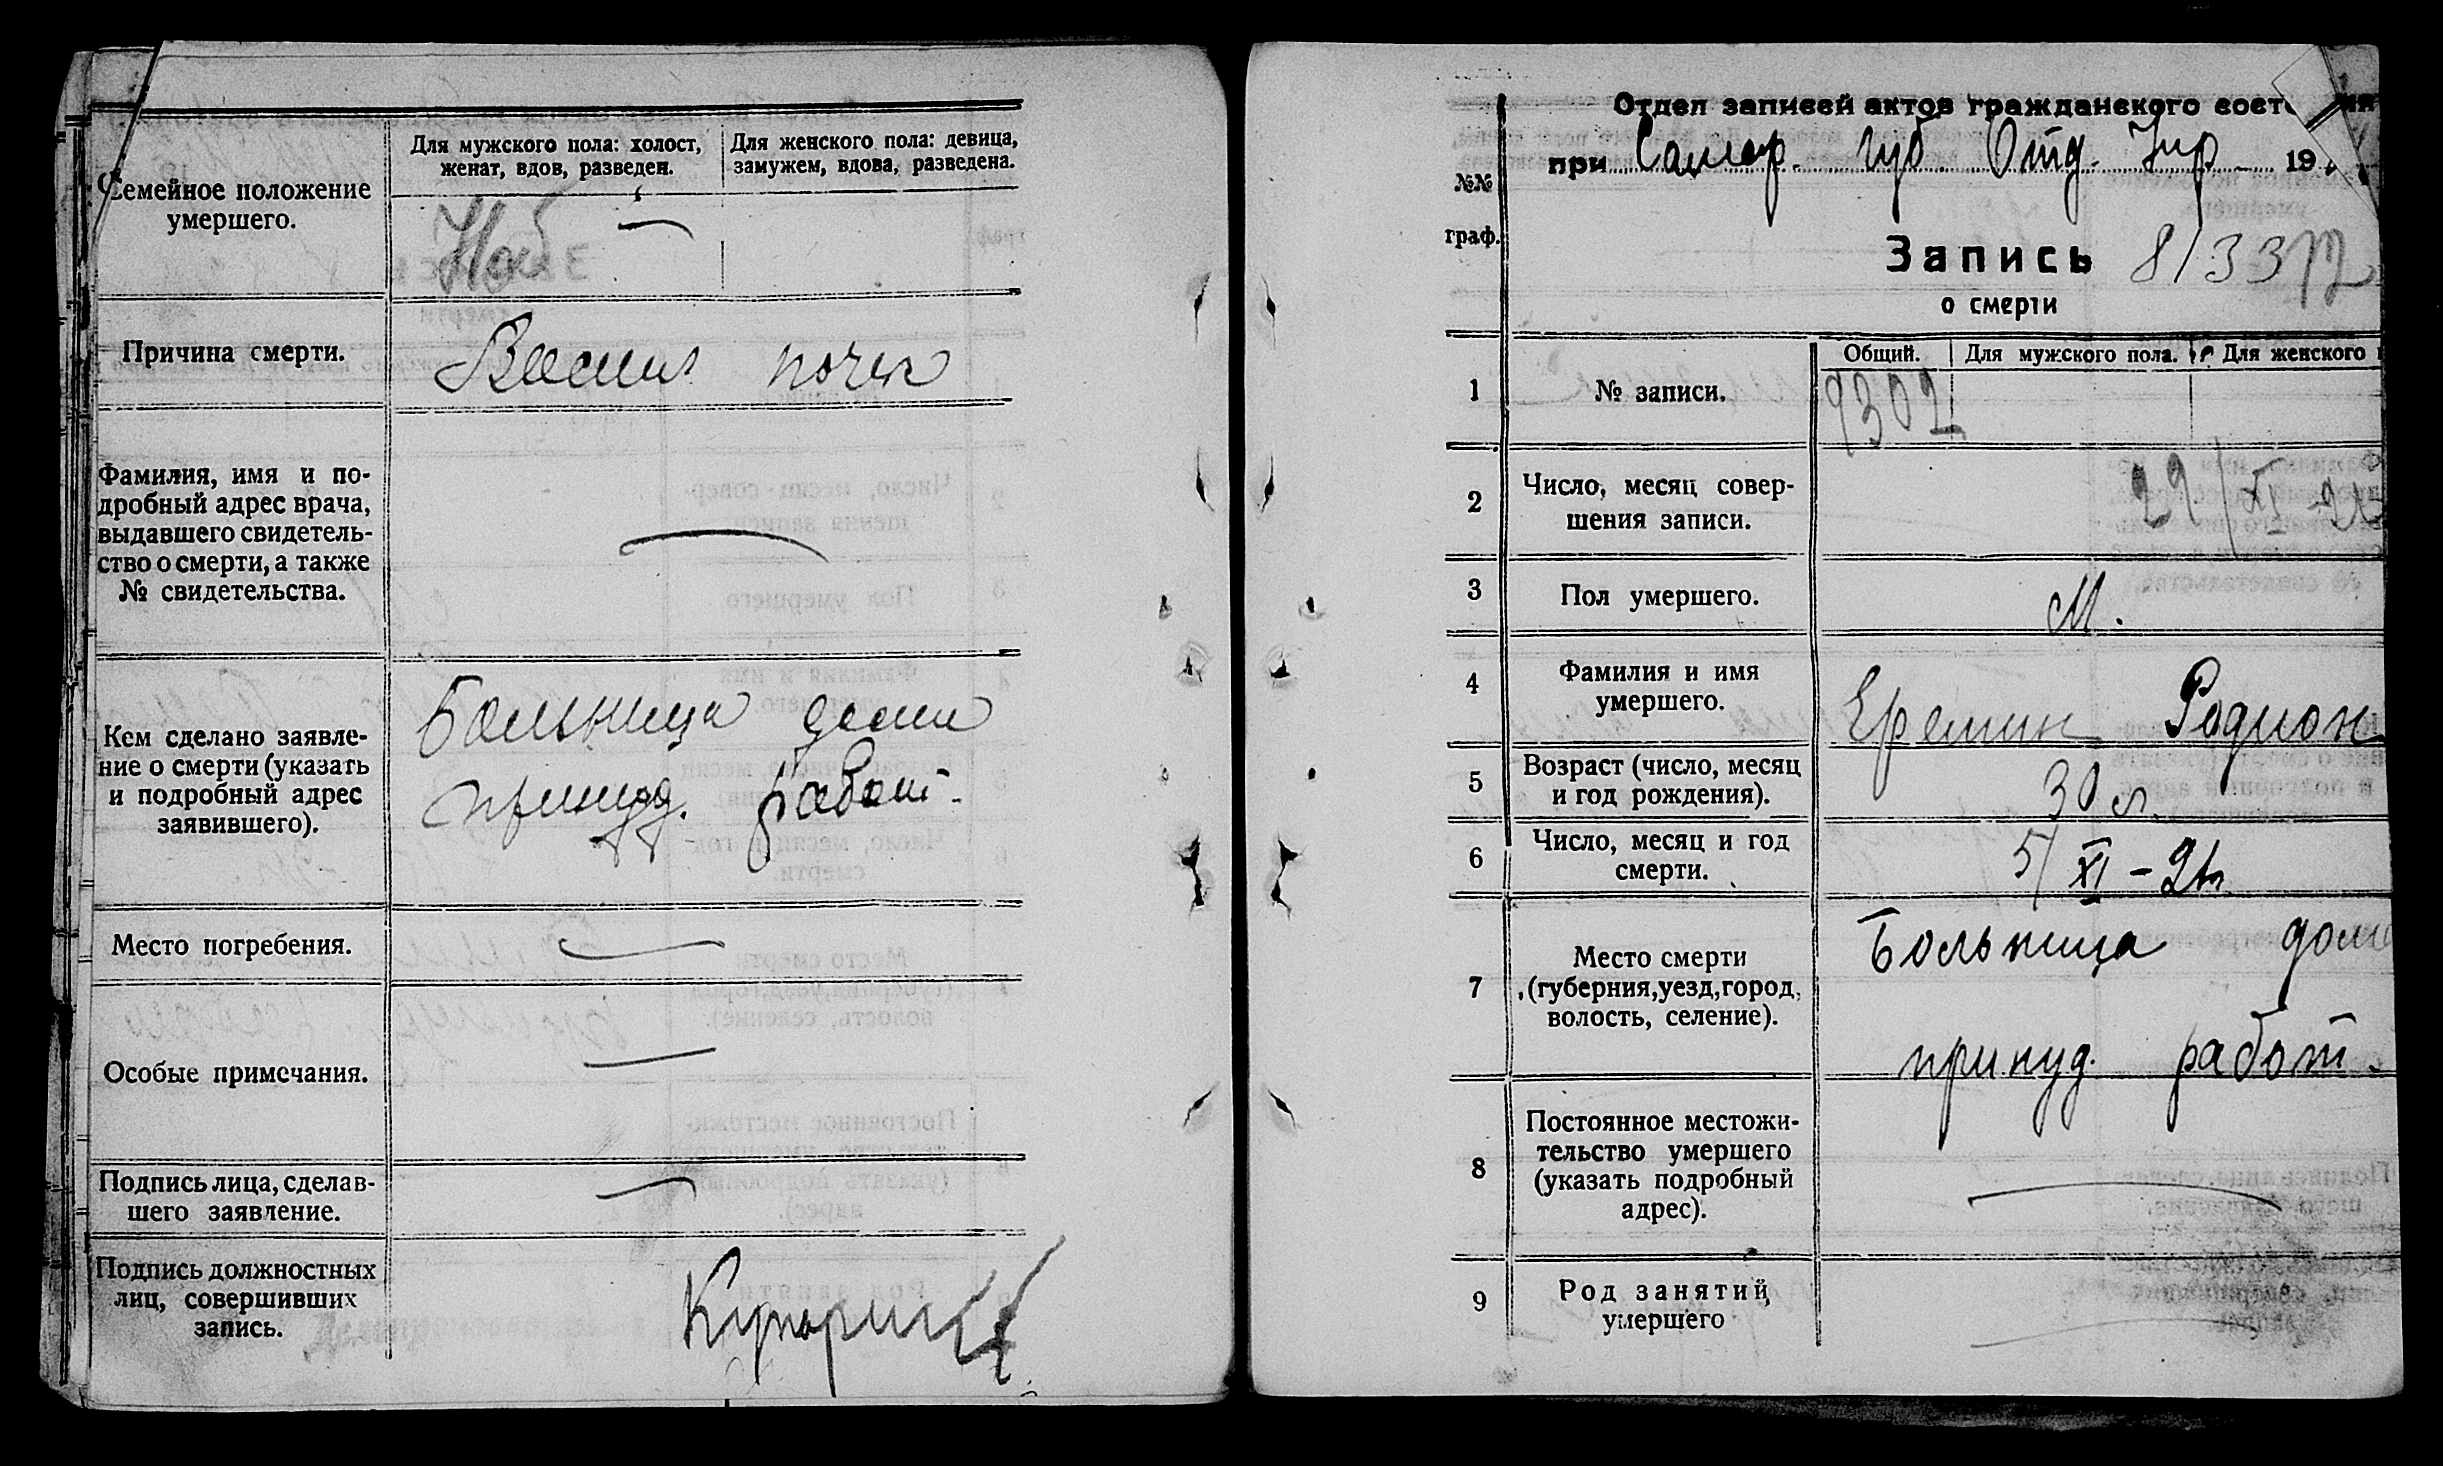 Семейное положение
умершего.
Для мужского пола: холост,
женат, вдов, разведен.
Для женского пола: девица,
замужем, вдова, разведена.
Причина смерти.
почек
Фамилия, имя и по-
дробный адрес врача,
выдавшего свидетель-
ство о смерти, а также
№ свидетельства.
Кем сделано заявле-
ние о смерти (указать
и подробный адрес
заявившего).
Больница дома
принуд. работ.
Место погребения.
Особые примечания.
Подпись лица, сделав-
шего заявление.
Подпись должностных
лиц, совершивших
запись.
Отдел записей актов гражданского сост
при Самар. Губ. Отд. Упр 19
№№
граф.
Запись
о смерти
Общий.
Для мужского пола.
Для женского
1
№ записи.
9302
2
Число, месяц совер-
шения записи.
29/XI-21
3
Пол умершего.
М.
4
Фамилия и имя
умершего.
Еремин Родион
5
Возраст (число, месяц
и год рождения).
30 л.
6
Число, месяц и год
смерти.
5/XI-21г
7
Место смерти
(губерния, уезд, город,
волость, селение).
Больница дома
принуд. работ.
8
Постоянное местожи-
тельство умершего
(указать подробный
адрес).
9
Род занятий
умершего